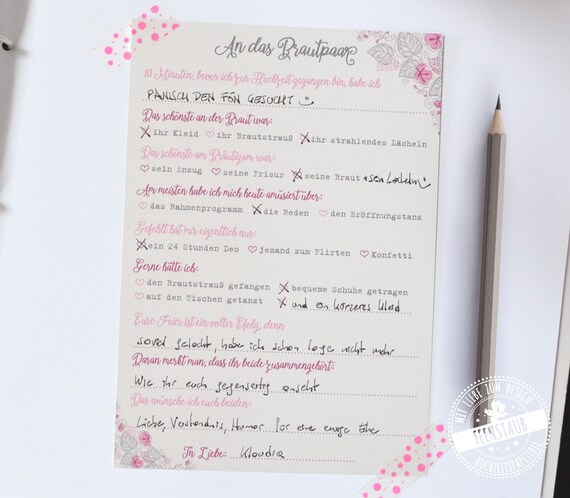 An das Brautpaar
10 Minuten, bevor ich zur Hochzeit gegangen bin, habe ich
PANISCH DEN FÖN GESUCHT
Das schönste an der Braut war:
ihr Kleid ihr Brautstrauß ihr strahlendes Lächeln
Das schönste am Bräutigam war:
sein Anzug seine Frisur seine Braut + sein Lächeln
Am meisten habe ich mich heute amüsiert über:
das Rahmenprogramm die Reden den Eröffnungstanz
Gefehlt hat mir eigentlich nur:
ein 24 Stunden Deo jemand zum Flirten Konfetti
Gerne hätte ich:
den Brautstrauß gefangen bequeme Schuhe getragen
auf den Tischen getanzt und ein kürzeres Kleid
Eure Feier ist ein voller Efolg, denn
soviel gelacht, habe ich schon lage nicht mehr
Daran merkt man, dass ihr beide zusammengehört:
Wie ihr euch gegenseitig anseht
Das wünsche ich euch beiden:
Liebe, Verständnis, Humor für eine ewige Ehe
In Liebe: Klaudia
MIT LIEBE ZUM DETAIL
FEENSTAUB
HOCHZEITSPAPETERIE